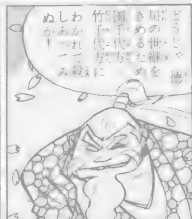 どうじゃ
国の世継を
きめるため
国千代方
竹千代方に
わかれて殺
しあってみ
ぬか！